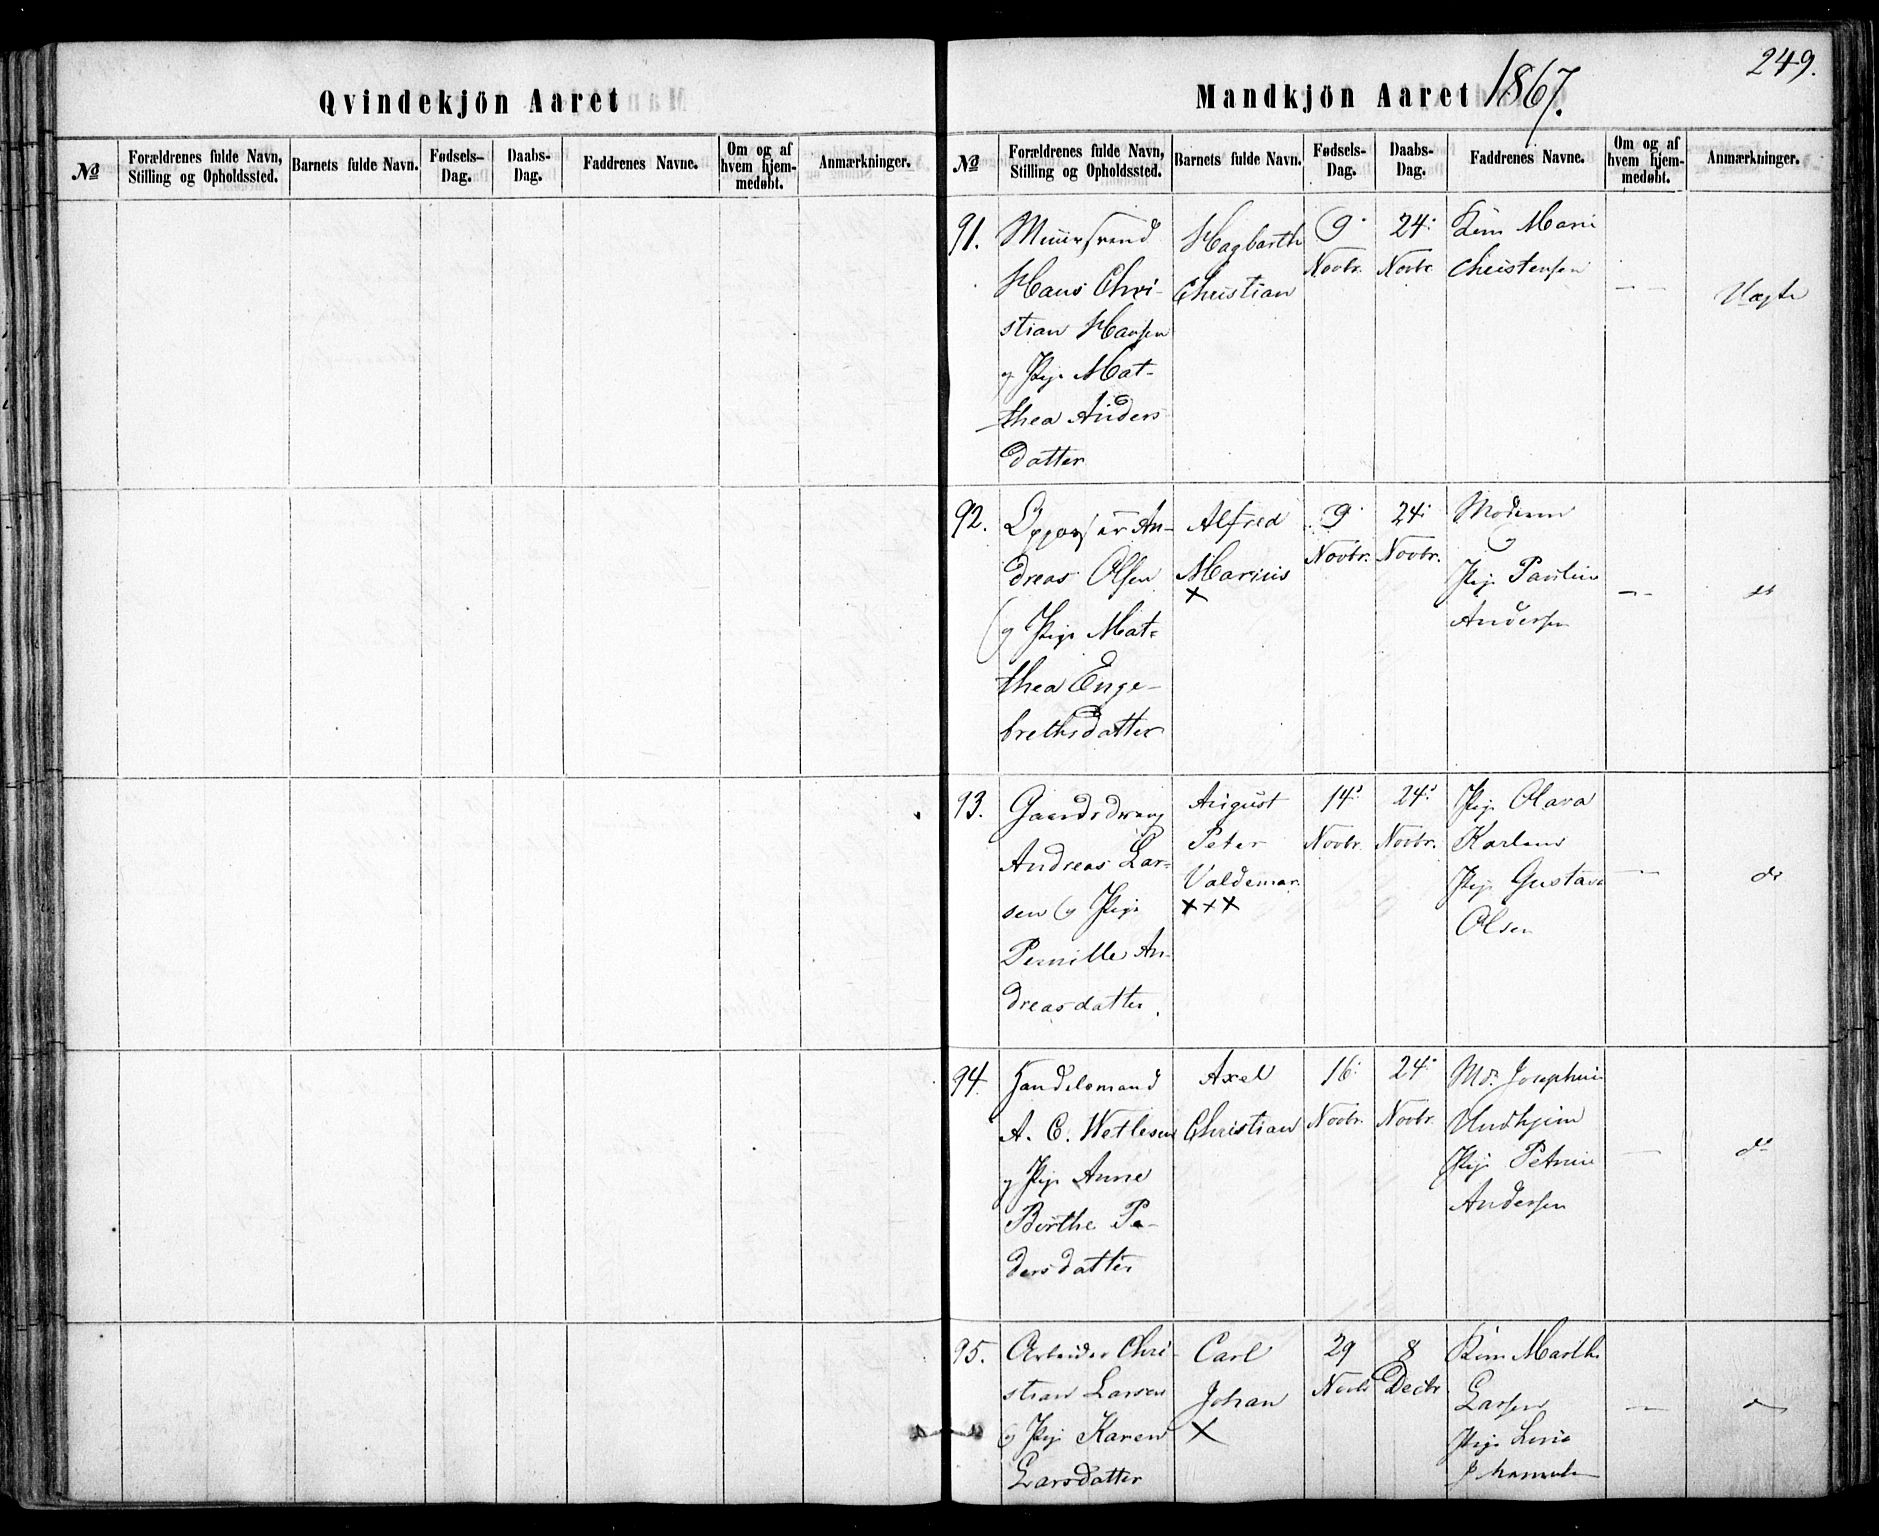 249.
Qvindekjön Aaret
Mandkjön Aaret 1867.
№ Forældrenes fulde Navn, Stilling og Opholdssted. Barnets fulde Navn. Fødsels-Dag. Daabs-Dag. Faddrenes Navne. Om og af hvem hjemmedøbt. Anmærkninger.
№ Forældrenes fulde Navn, Stilling og Opholdssted. Barnets fulde Navn. Fødsels-Dag. Daabs-Dag. Faddrenes Navne. Om og af hvem hjemmedøbt. Anmærkninger.
91. Muursvend Hagbarth 9 24 Marie
Hans Chri- Christian Novbr. Novbr Christensen
stian Hansen — Uægte
og Pige Mat-
thea Anders
datter
92. Oppasser An- Alfred 9 24 Moderen
dreas Olsen Marius Novbr. Novbr.
x Pige Pauline
og Pige Mat- Andersen — do
thea Enge-
brethsdatter
93. Gaardsdreng August 14 24 Pige Olava
Andreas Lar- Peter Novbr. Novbr. Karlsen
sen og Pige Valdemar Pige Gustava — do
Pernille An- x x x Olsen
dreasdatter.
94. Handelsmand Axel 16 24 Md. Josephine
A. C. Wetlesen Christian Novbr. Novbr.
og Pige Anne Pige Petrine — do
Berthe Pe- Andersen
dersdatter
95. Arbeider Chri- Carl 29 8 Marthe
stian Larsen Johan Novbr Decbr. Larsen —
og Pige Karen x Pige
Larsdatter